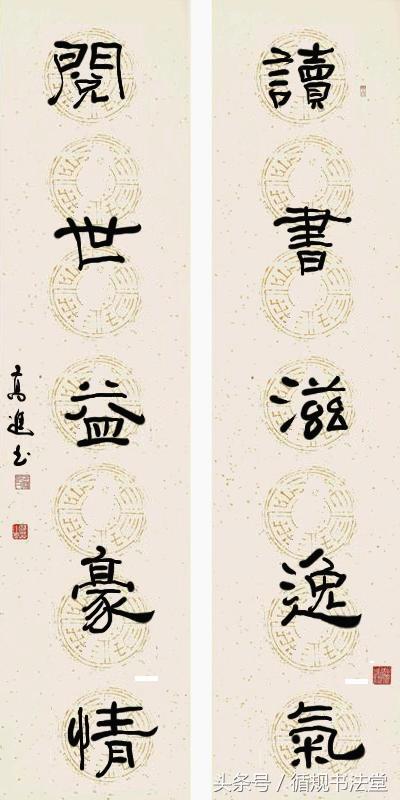 讀書滋逸氣
閱世益豪情
高進书
头条号/循规书法堂